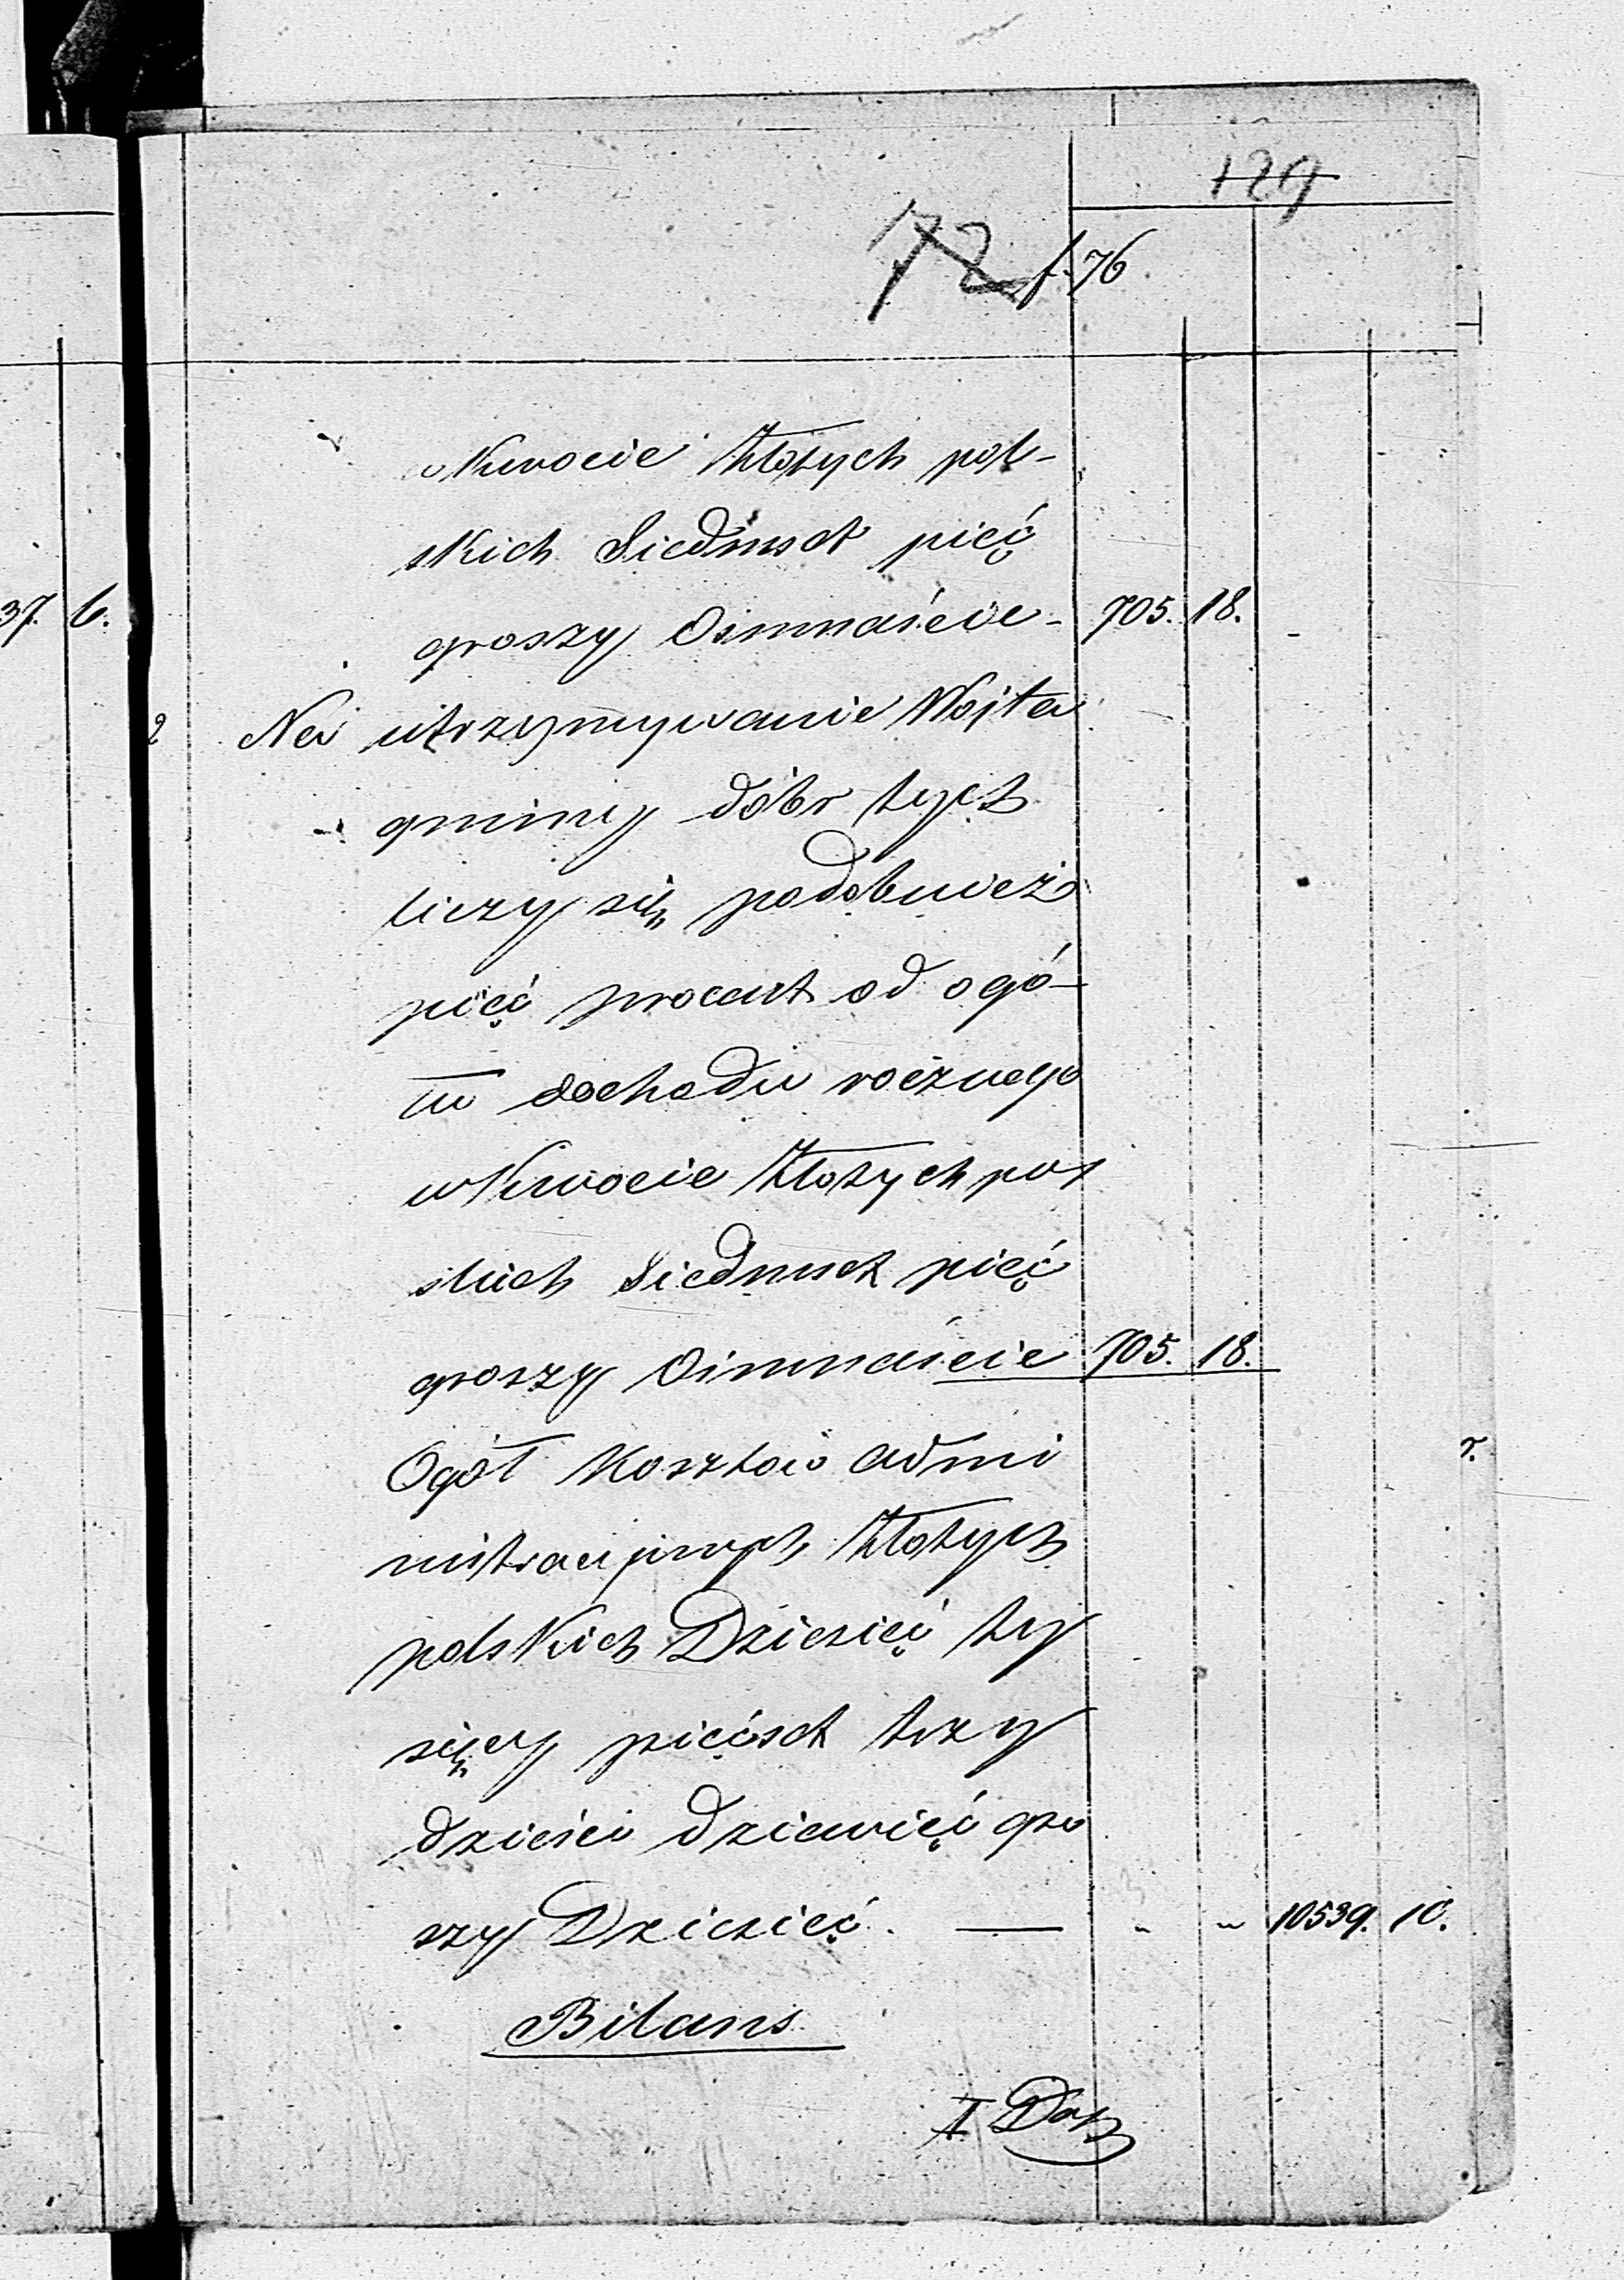 129
72 f. 76
w Kwocie Złotych pol-
skich Siedmset pięć
groszy Ośmnaście - 705. 18. -
37. 6.
2 Na utrzymywanie Wójta
gminy dóbr tych
liczy się podobnież
pięć procent od ogó-
łu dochodu rocznego
w Kwocie Złotych pol
skich Siedmset pięć
groszy Ośmnaście 705. 18.
Ogół Kosztów admi
nistracyjnych Złotych
polskich Dziesięć ty
sięcy pięćset trzy
dzieści dziewięć gro
szy Dziesięć. — " " 10539. 10.
Bilans
I Doch